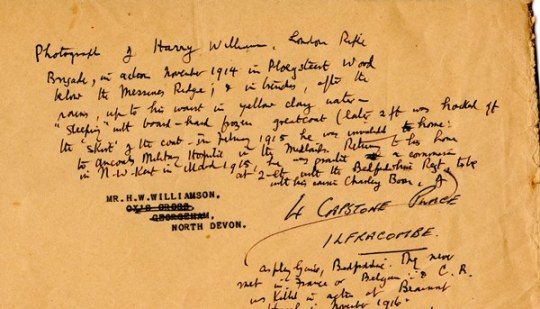 Photograph of Harry William, London Rifle
Brigade, in action November 1914 in Ploegsteert Wood
below the Messines Ridge; & in trenches, after the
rains, up to his waist in yellow clay water —
"sleeping" with board-hard frozen greatcoat (later 2 ft was hacked off
the 'skirt' of the coat - in 1915 he was invalided home:
to Military Hospital in the Midlands. Return to his home
in N.W. Kent in March 1915, he was a commission
as 2-Lt with the Bedfordshire Regt, to be
with his cousin Charley Boon, of
MR. H.W. WILLIAMSON,
OX'S CROSS
GEORGEHAM,
NORTH DEVON.
4 CAPSTONE PLACE
ILFRACOMBE.
Aspley Guise, Bedfordshire. They never
met in France or Belgium: & C. B.
was killed in action at Beaumont
Hamel in November 1916